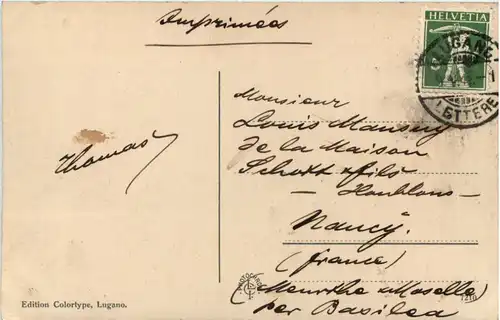 Imprimées
HELVETIA
LUGANO
LETTERE
Monsieur
Louis Mansuy
de la Maison
Schott & fils
Thomas
— Houblons —
Nancy.
(france)
(Meurthe & Moselle)
per Basilea
Edition Colortype, Lugano.